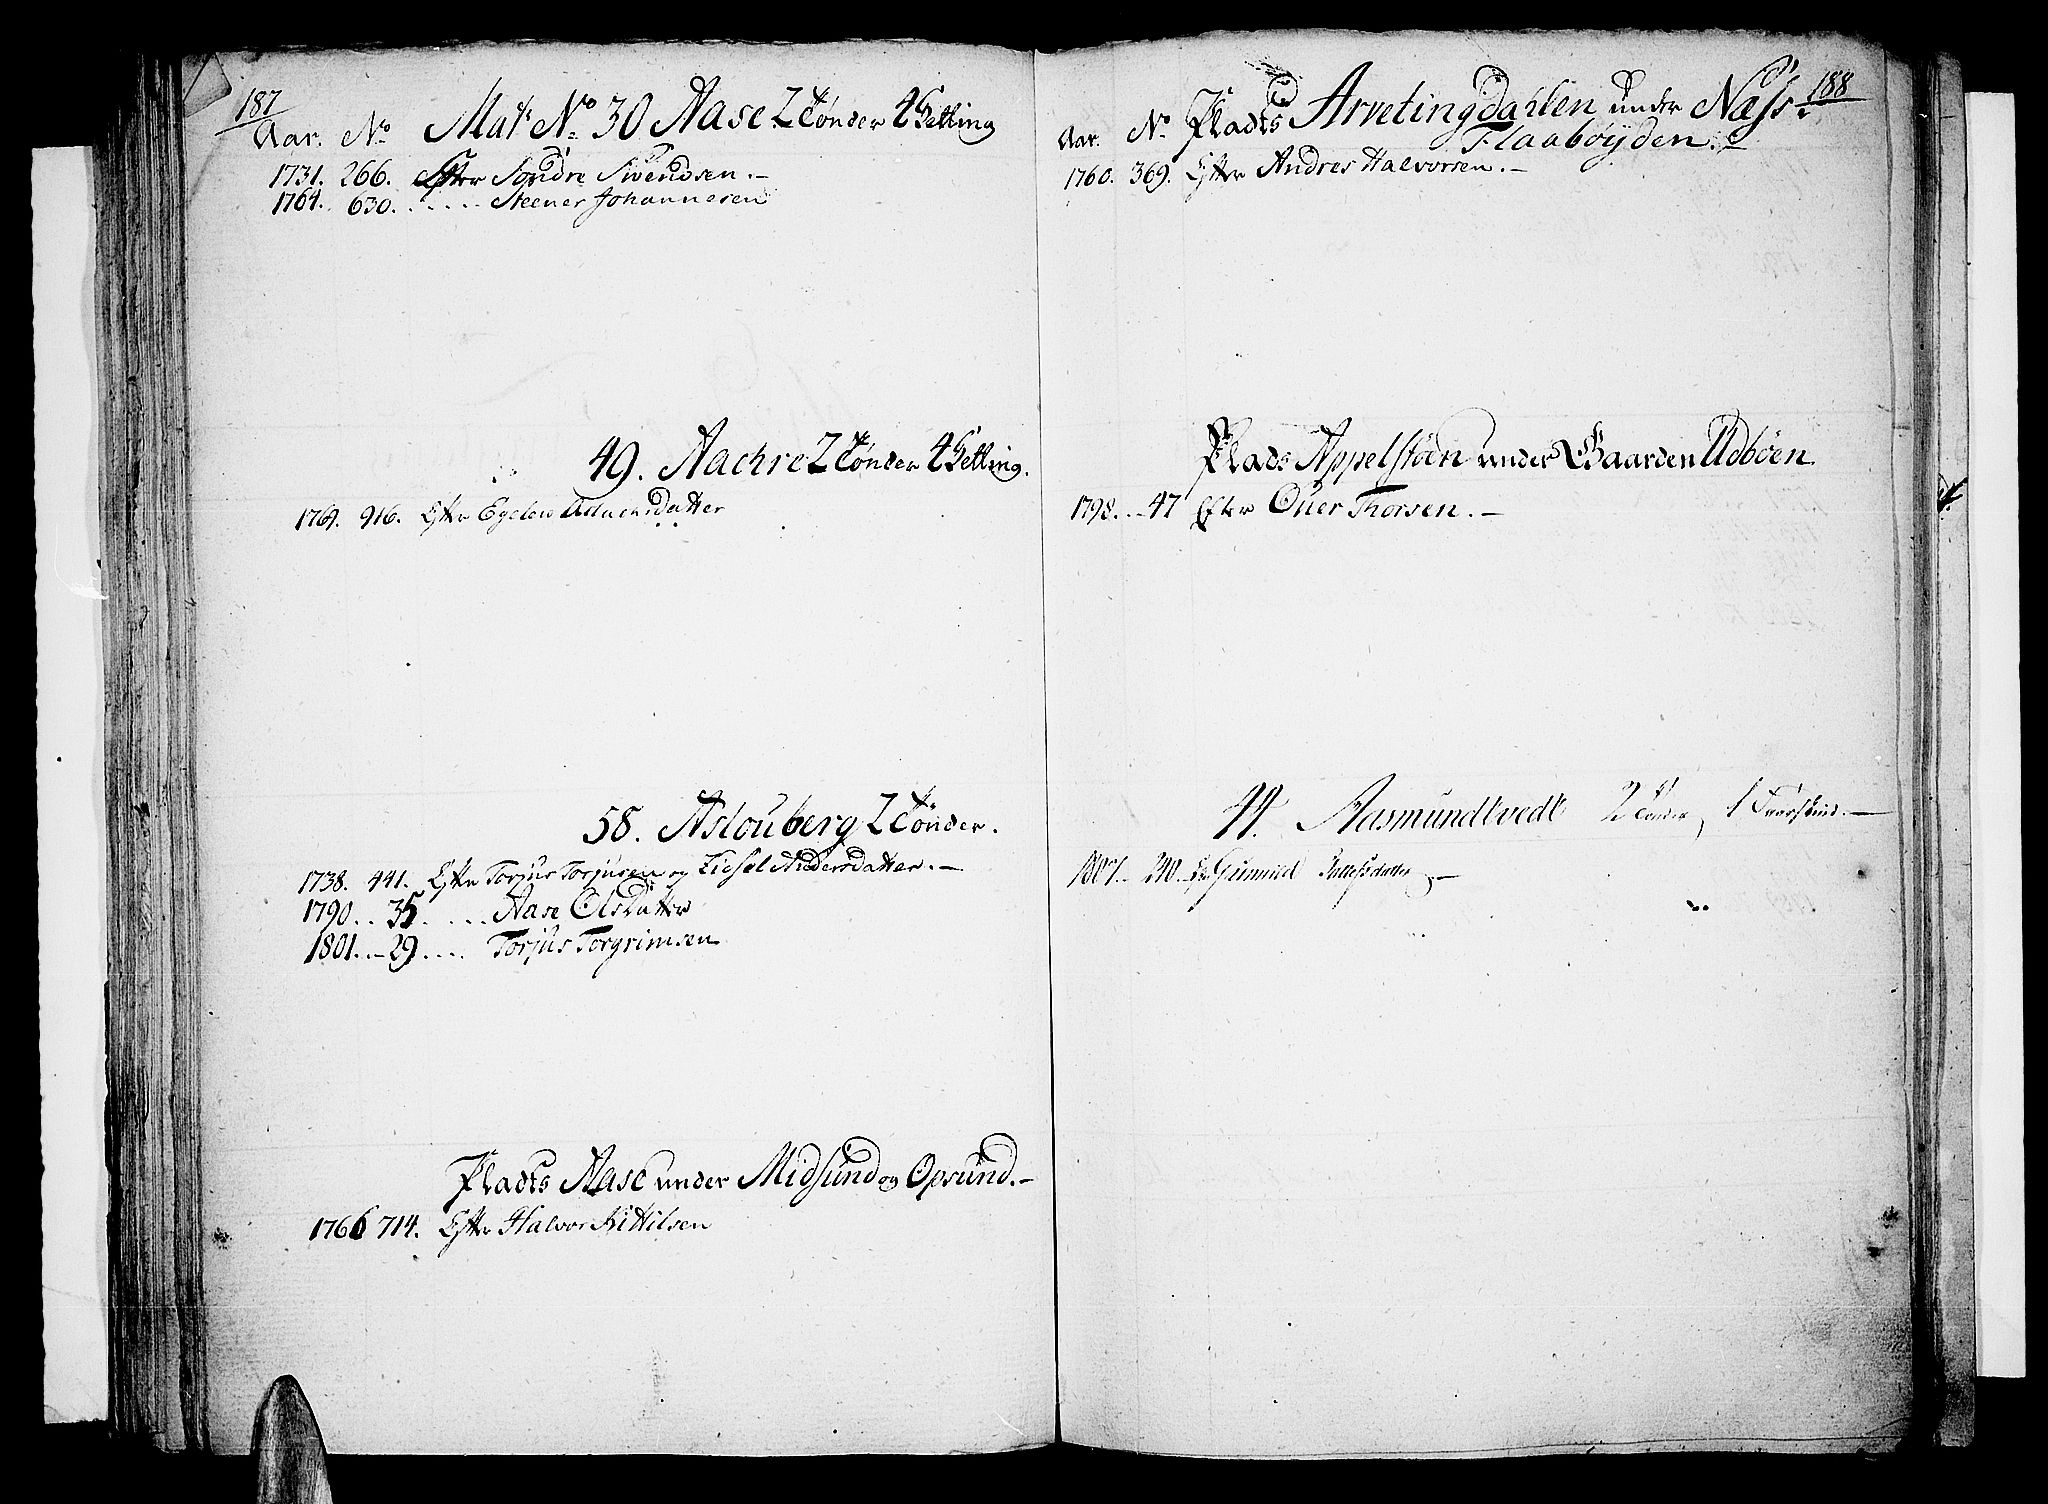 187
Aar. No Matr No 30 Aase 2 Tønder 4 Setting
1731. 266. Efter Sondre Svendsen. —
1764. 630. . . . . . Steener Johannesen
49. Aachre 2 Tønder 4 Setting.
1769. 916. Efter Egelev Aslachsdatter
58. Aslouberg 2 Tønder.
1738. 441. Efter Torjus Torjusen og Ziesel Andersdatter. —
1790. . 35. . . . . Aase Olsdatter
1801. . – 29. . . . Torjus Torgrimsen
Pladts Aase under Midsund og Opsund. —
1766 714. Efter Halvor Kittilsen
188
Aar. No Pladts Arvetingdahlen under Næss
Flaabøijden.
1760. 369. Efter Andres Halvorsen. —
Plads Appelstøen under Gaarden Udbøen
1798. . – 47 Efter Ouer Thorsen. —
44. Aasmundtvedt 2 Tønder, 1 Faarskind. —
1807. – 240. – Gunnild —